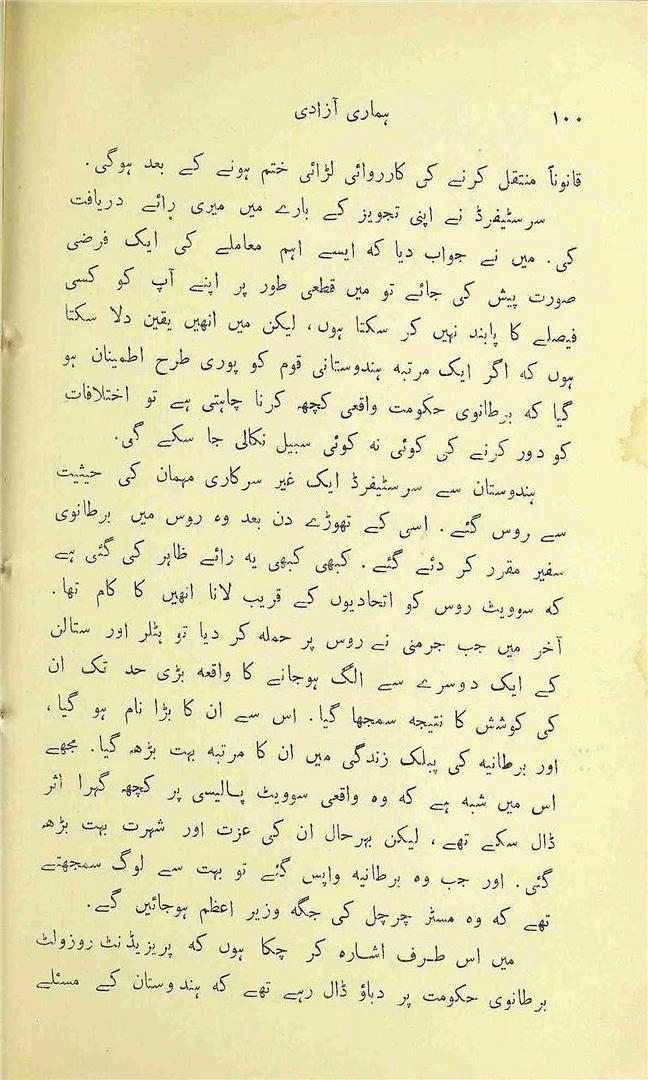 ۱۰۰ ہماری آزادی
قانوناً منتقل کرنے کی کارروائی لڑائی ختم ہونے کے بعد ہوگی۔
سرسٹیفرڈ نے اپنی تجویز کے بارے میں میری رائے دریافت
کی۔ میں نے جواب دیا کہ ایسے اہم معاملے کی ایک فرضی
صورت پیش کی جائے تو میں قطعی طور پر اپنے آپ کو کسی
فیصلے کا پابند نہیں کر سکتا ہوں، لیکن میں انھیں یقین دلا سکتا
ہوں کہ اگر ایک مرتبہ ہندوستانی قوم کو پوری طرح اطمینان ہو
گیا کہ برطانوی حکومت واقعی کچھ کرنا چاہتی ہے تو اختلافات
کو دور کرنے کی کوئی نہ کوئی سبیل نکالی جا سکے گی۔
ہندوستان سے سرسٹیفرڈ ایک غیر سرکاری مہمان کی حیثیت
سے روس گئے۔ اسی کے تھوڑے دن بعد وہ روس میں برطانوی
سفیر مقرر کر دئے گئے۔ کبھی کبھی یہ رائے ظاہر کی گئی ہے
کہ سوویٹ روس کو اتحادیوں کے قریب لانا انھیں کا کام تھا۔
آخر میں جب جرمنی نے روس پر حملہ کر دیا تو ہٹلر اور ستالن
کے ایک دوسرے سے الگ ہوجانے کا واقعہ بڑی حد تک ان
کی کوشش کا نتیجہ سمجھا گیا۔ اس سے ان کا بڑا نام ہو گیا،
اور برطانیہ کی پبلک زندگی میں ان کا مرتبہ بہت بڑھ گیا۔ مجھے
اس میں شبہ ہے کہ وہ واقعی سوویٹ پالیسی پر کچھ گہرا اثر
ڈال سکے تھے، لیکن بہرحال ان کی عزت اور شہرت بہت بڑھ
گئی۔ اور جب وہ برطانیہ واپس گئے تو بہت سے لوگ سمجھتے
تھے کہ وہ مسٹر چرچل کی جگہ وزیر اعظم ہوجائیں گے۔
میں اس طرف اشارہ کر چکا ہوں کہ پریزیڈنٹ روزولٹ
برطانوی حکومت پر دباؤ ڈال رہے تھے کہ ہندوستان کے مسئلے